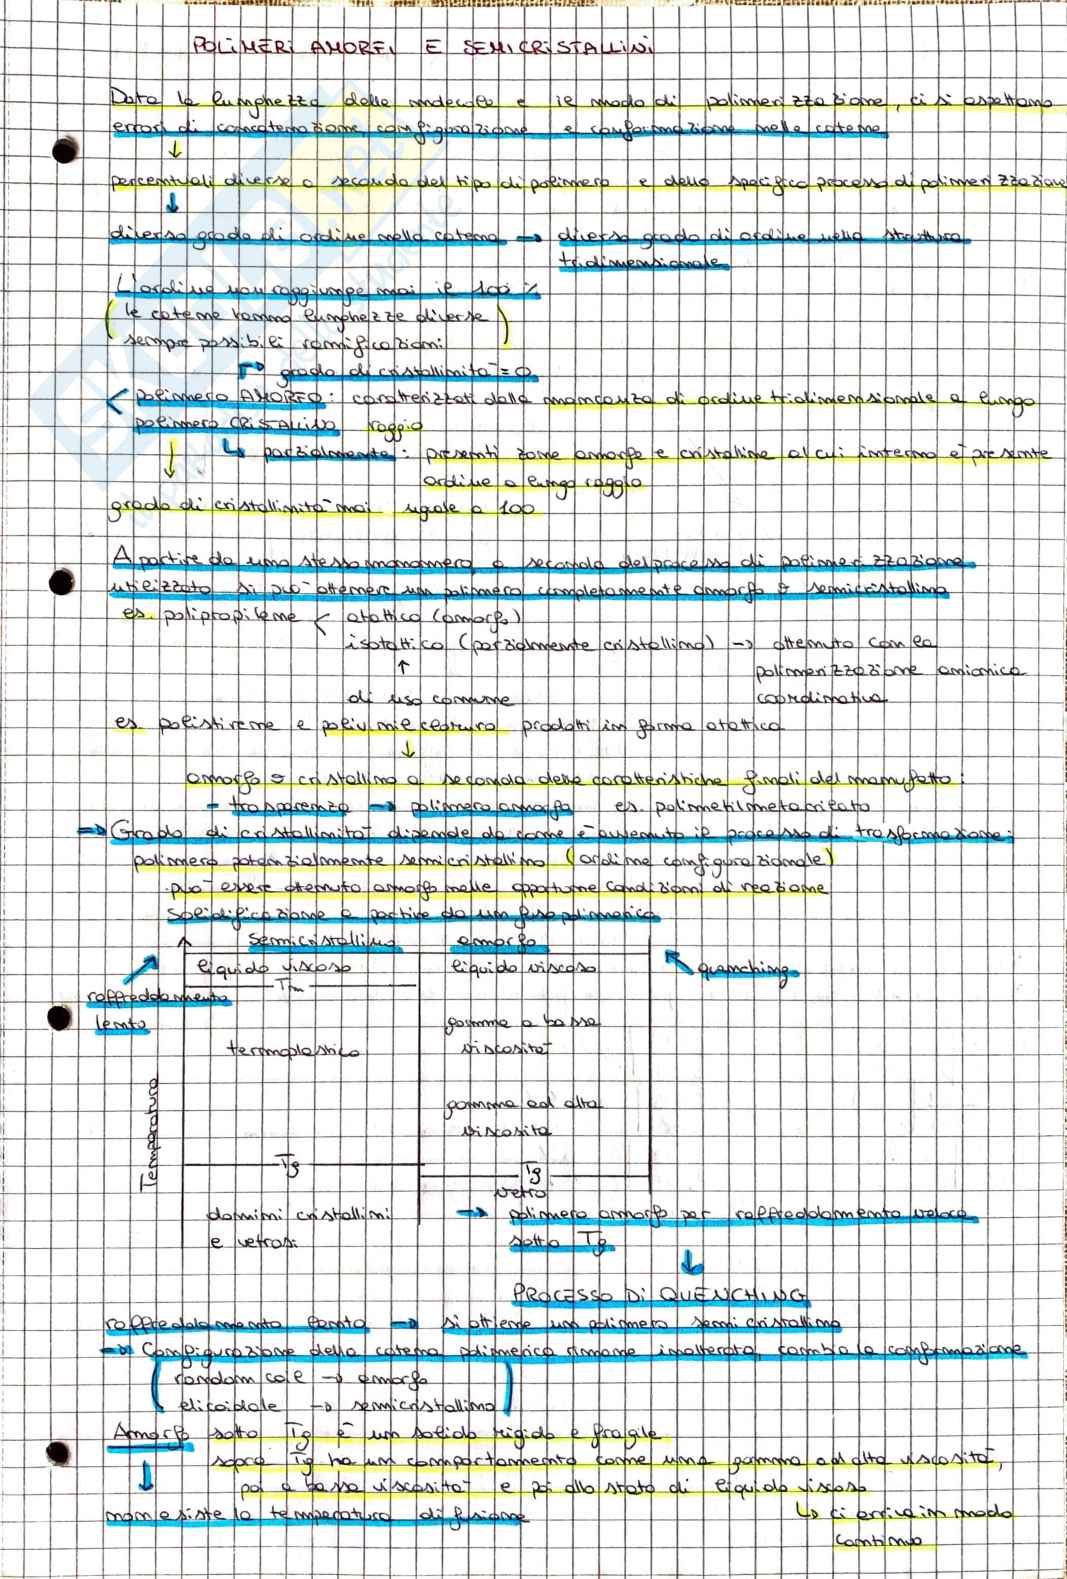 POLIMERI AMORFI E SEMICRISTALLINI
Data la lunghezza delle molecole e il modo di polimerizzazione, ci si aspettano
errori di concatenazione, configurazione e conformazione nelle catene
↓
percentuali diverse a seconda del tipo di polimero e dello specifico processo di polimerizzazione
↓
diverso grado di ordine nella catena → diverso grado di ordine nella struttura
tridimensionale
L'ordine non raggiunge mai il 100 %
(le catene hanno lunghezze diverse
sempre possibili ramificazioni)
↱ grado di cristallinità = 0
< polimero AMORFO: caratterizzati dalla mancanza di ordine tridimensionale a lungo
raggio
polimero CRISTALLINO
↓ ↳ parzialmente: presenti zone amorfe e cristalline al cui interno è presente
ordine a lungo raggio
grado di cristallinità mai uguale a 100
A partire da uno stesso monomero, a seconda del processo di polimerizzazione
utilizzato si può ottenere un polimero completamente amorfo o semicristallino
es. polipropilene < atattico (amorfo)
isotattico (parzialmente cristallino) → ottenuto con la
polimerizzazione anionica
coordinativa
↑
di uso comune
es polistirene e polivinilcloruro prodotti in forma atattica
↓
amorfo o cristallino a seconda delle caratteristiche finali del manufatto:
- trasparenza → polimero amorfo es. polimetilmetacrilato
→ Grado di cristallinità dipende da come è avvenuto il processo di trasformazione:
polimero potenzialmente semicristallino (ordine configurazionale)
può essere ottenuto amorfo nelle opportune condizioni di reazione
solidificazione a partire da un fuso polimerico
semicristallino amorfo
liquido viscoso liquido viscoso quenching
Tm
raffreddamento
lento
gomma a bassa
viscosità
termoplastico
gomma ad alta
viscosità
Temperatura
Tg Tg
vetro
domini cristallini
e vetrosi
→ polimero amorfo per raffreddamento veloce
sotto Tg
↓
PROCESSO DI QUENCHING
raffreddamento lento → si ottiene un polimero semicristallino
→ Configurazione della catena polimerica rimane inalterata, cambia la conformazione
(random coil → amorfo
elicoidale → semicristallino)
Amorfo sotto Tg è un solido rigido e fragile
sopra Tg ha un comportamento come una gomma ad alta viscosità,
↓ poi a bassa viscosità e poi allo stato di liquido viscoso
non esiste la temperatura di fusione
↳ ci arriva in modo
continuo